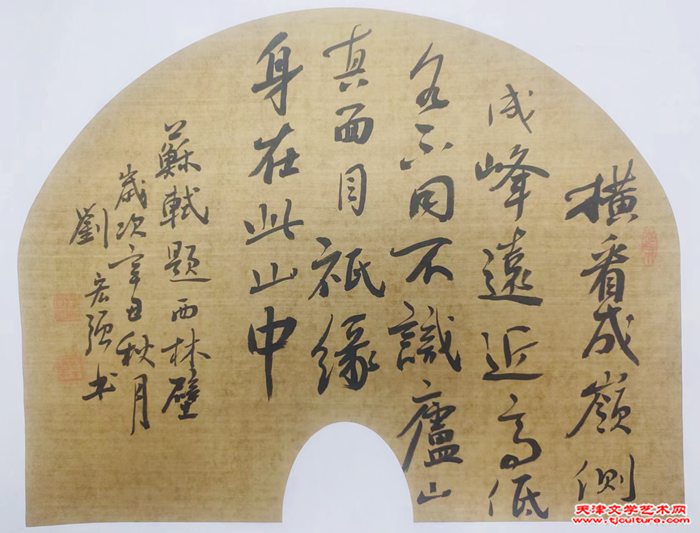 橫看成嶺側
成峰遠近高低
各不同不識廬山
真面目祗緣
身在此山中
蘇軾題西林壁
歲次辛丑秋月
劉宏強书
天津文学艺术网
www.tjculture.com